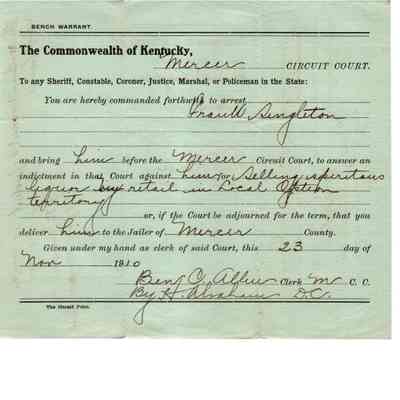 BENCH WARRANT.
The Commonwealth of Kentucky,
Mercer CIRCUIT COURT.
To any Sheriff, Constable, Coroner, Justice, Marshal, or Policeman in the State:
You are hereby commanded forthwith to arrest
Singleton
and bring him before the Mercer Circuit Court, to answer an
indictment in that Court against him for Selling spiritous
liquor by retail in Local Option
territory
or, if the Court be adjourned for the term, that you
deliver him to the Jailer of Mercer County.
Given under my hand as clerk of said Court, this 23 day of
Nov 1910
Ben C. Allin Clerk M C. C.
By H. Abraham D.C.
The Herald Print.